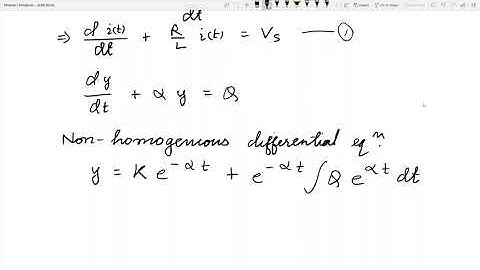 dt
⇒ d i(t)/dt + R/L i(t) = Vs —— ①
dy/dt + α y = Q
Non-homogenious differential eqⁿ:
y = K e^{-αt} + e^{-αt} ∫ Q e^{αt} dt